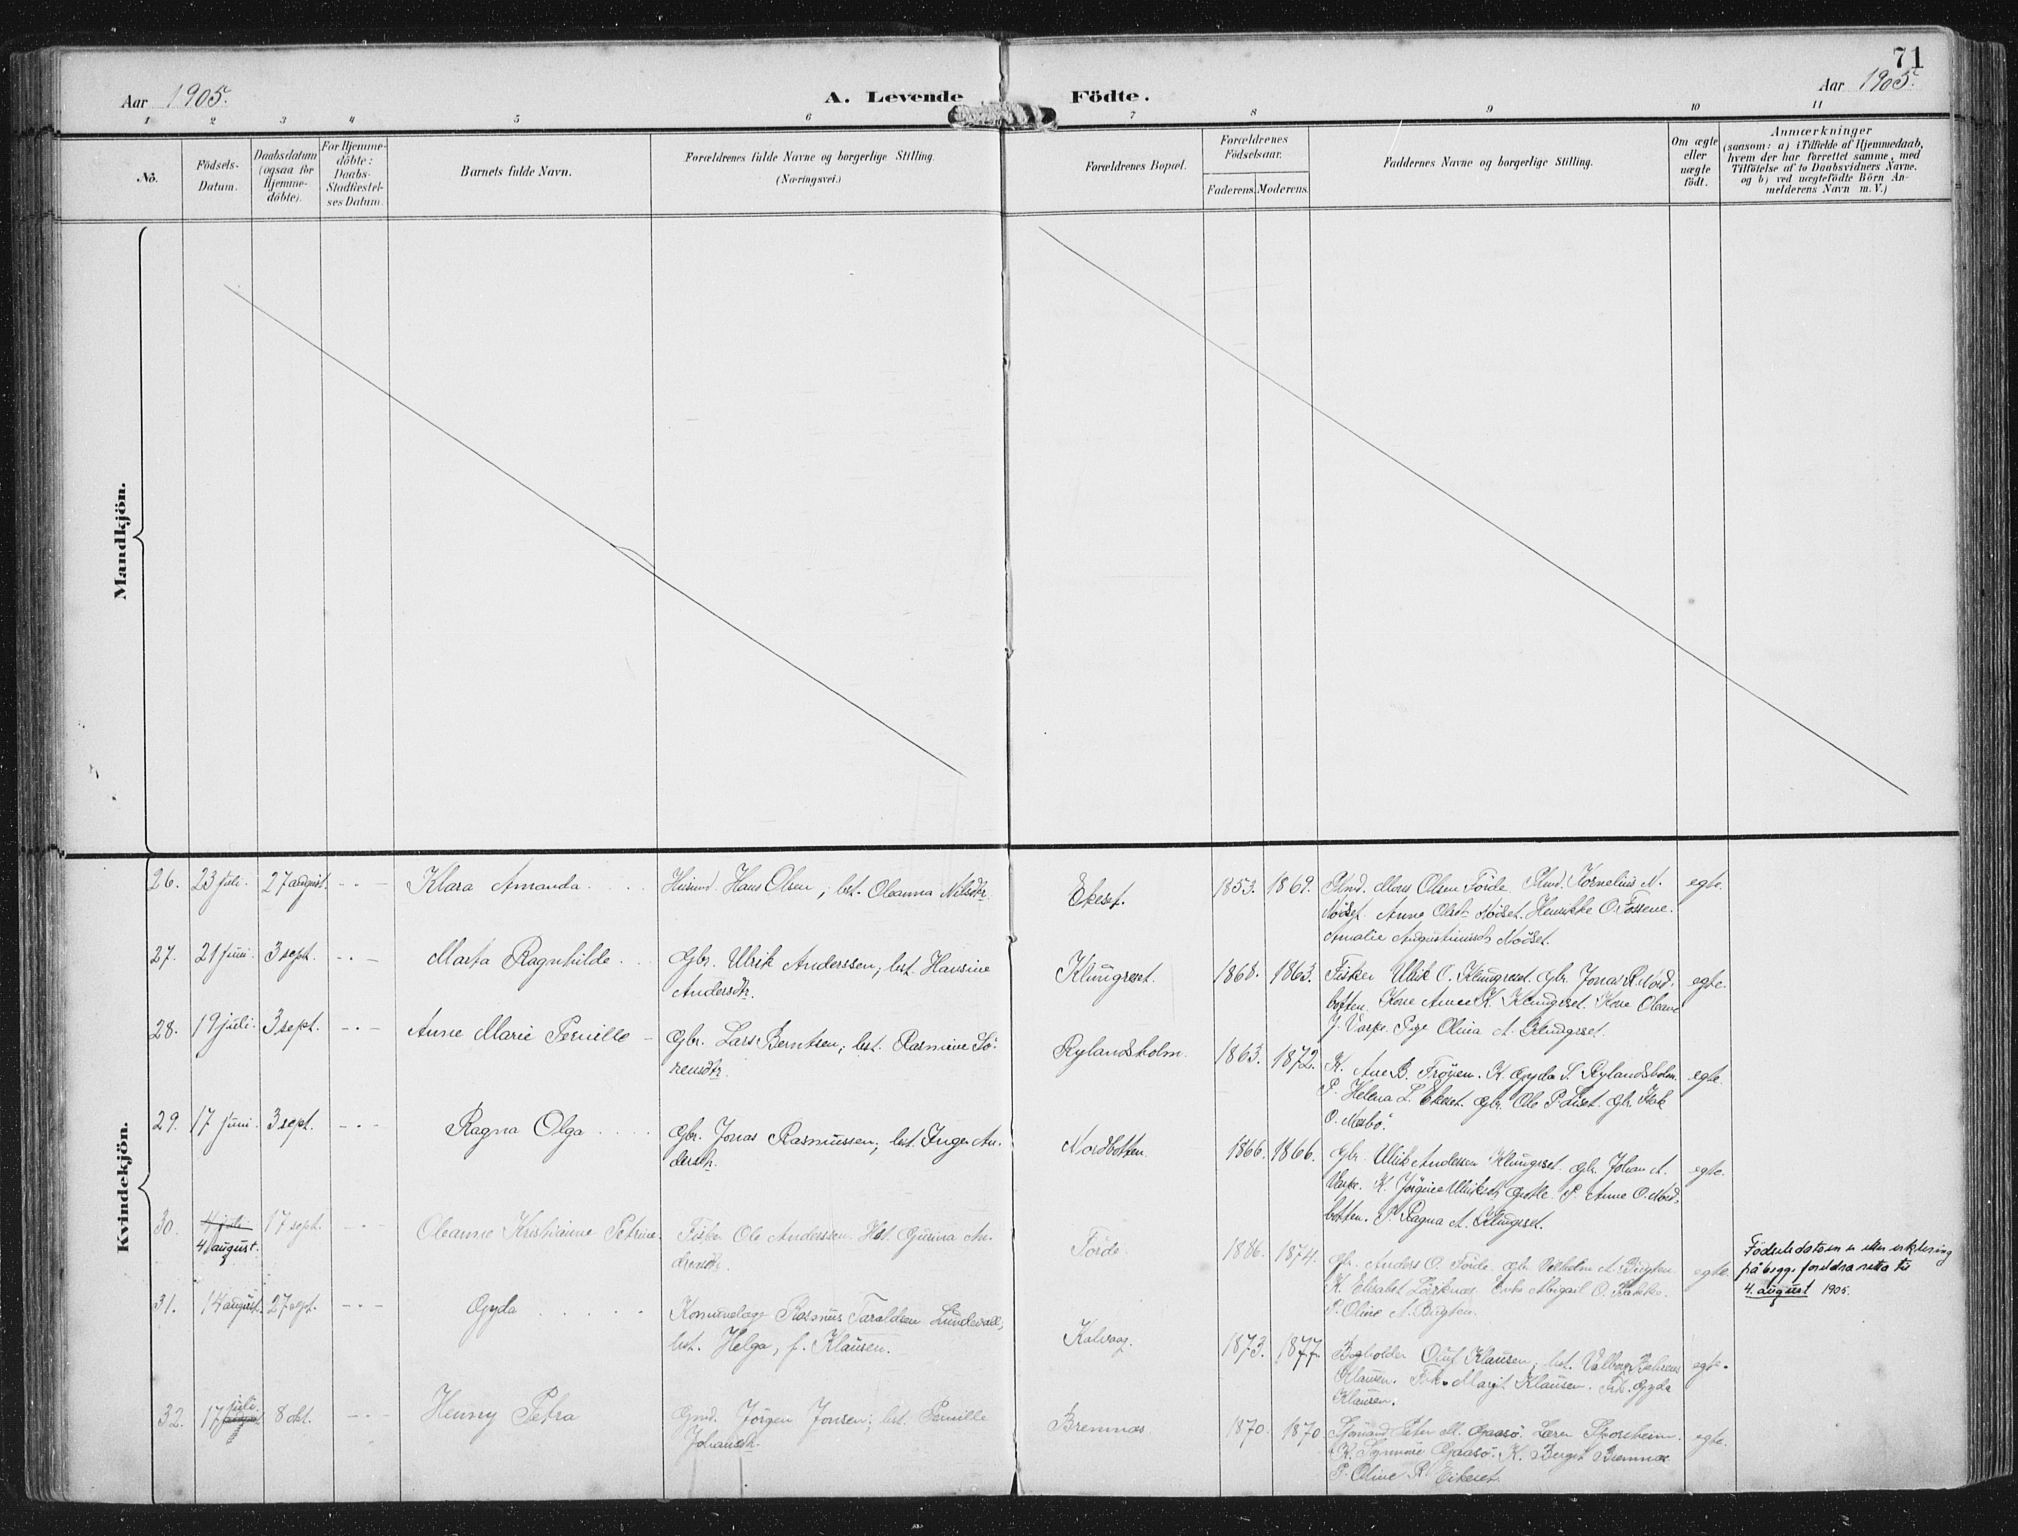 71
Aar 1905.
A. Levende Födte.
Aar 1905.
1 2 3 4 5 6 7 8 9 10 11
No.
Födsels-Datum.
Daabsdatum (ogsaa for Hjemme-döbte).
For Hjemme-döbte: Daabs-Stadfæstel-ses Datum.
Barnets fulde Navn.
Forældrenes fulde Navne og borgerlige Stilling.
(Næringsvei.)
Forældrenes Bopæl.
Forældrenes Födselsaar.
Faderens. Moderens.
Faddernes Navne og borgerlige Stilling.
Om ægte eller uægte födt.
Anmærkninger
(saasom: a) i Tilfælde af Hjemmedaab,
hvem der har forrettet samme, med
Tilföielse af to Daabsvidners Navne.
og b) ved uægtefödte Börn An-
melderens Navn m. V.)
Mandkjön.
Kvindekjön.
26. 23 juli. 27 august. - - - Klara Amanda. Hans Olsen; hst. Oleanna Nilsdtr. Ekeset. 1853. 1869. Mons Olsen Förde. Kornelius N.
Nöset. Anne Olsdtr Nöset. Henrikke O. Fossene.
Amalie Nöset. egte.
27. 21 juni. 3 sept. - - - Marta Ragnhilde. Gbr. Ulrik Anderssen; hst. Hansine
Andersdtr. Klungreset. 1868. 1863. Fisker Ulrik O. Klungreset. Gbr. Jonas R. Nord-
botten. Kone Anne K. Klungreset. Kone Oleane
J. Varpe. Pige Olina A. Klungreset. egte.
28. 19 juli. 3 sept. - - - Anne Marie Pernille - Gbr. Lars Berntsen; hst. Rasmine Sö-
rensdtr. Rylandsholm. 1863. 1872. K. Ane B. Tröyen. K. Gyda S. Rylandsholm.
P. Helena L. Ekeset. Gbr. Ole P. Liset. Gbr. Isak
O. Mesbö. egte.
29. 17 juni. 3 sept. - - - Ragna Olga. Gbr. Jonas Rasmussen; hst. Inger An-
dersdtr. Nordbotten. 1866. 1866. Gbr. Ulrik Andersen Klungreset. Gbr. Johan A.
Varpe. K. Jörgine Ulriksdtr. Grotle. P. Anne O. Nord-
botten. P. Ragna A. Klungreset. egte.
30. 4 juli 4. august. 17 sept. - - - Oleanne Kristianne Petrine. Fisker Ole Anderssen. Hst. Gurina An-
dreasdtr. Förde. 1886. 1874. Gbr. Anders O. Förde. Gbr. Vilhelm A.
K. Elisabet Enke Abigail O.
P. Oline A. egte. Födselsdatoen er etter erklæring
frå begge foreldra retta til
4. august 1905.
31. 14 august. 27 sept. - - - Gyda Rasmus Taraldsen Lundevall,
hst. Helga, f. Klausen. Kalvaag. 1873. 1877. Oluf Klausen; hst. Valborg Behrens
Klausen. Frk. Margit Klausen. Frk. Gyda
Klausen. egte.
32. 17 juli august. 8 okt. - - - Henny Petra Gmd. Jörgen Jonsen; hst. Pernille
Johansdtr. Bremnæs. 1870. 1870. Sjömand Peter M. Gaasö. Lærer
K. Synnöve Gaasö. K. Bergit Bremnæs
P. Oline R. Eikeset. egte.